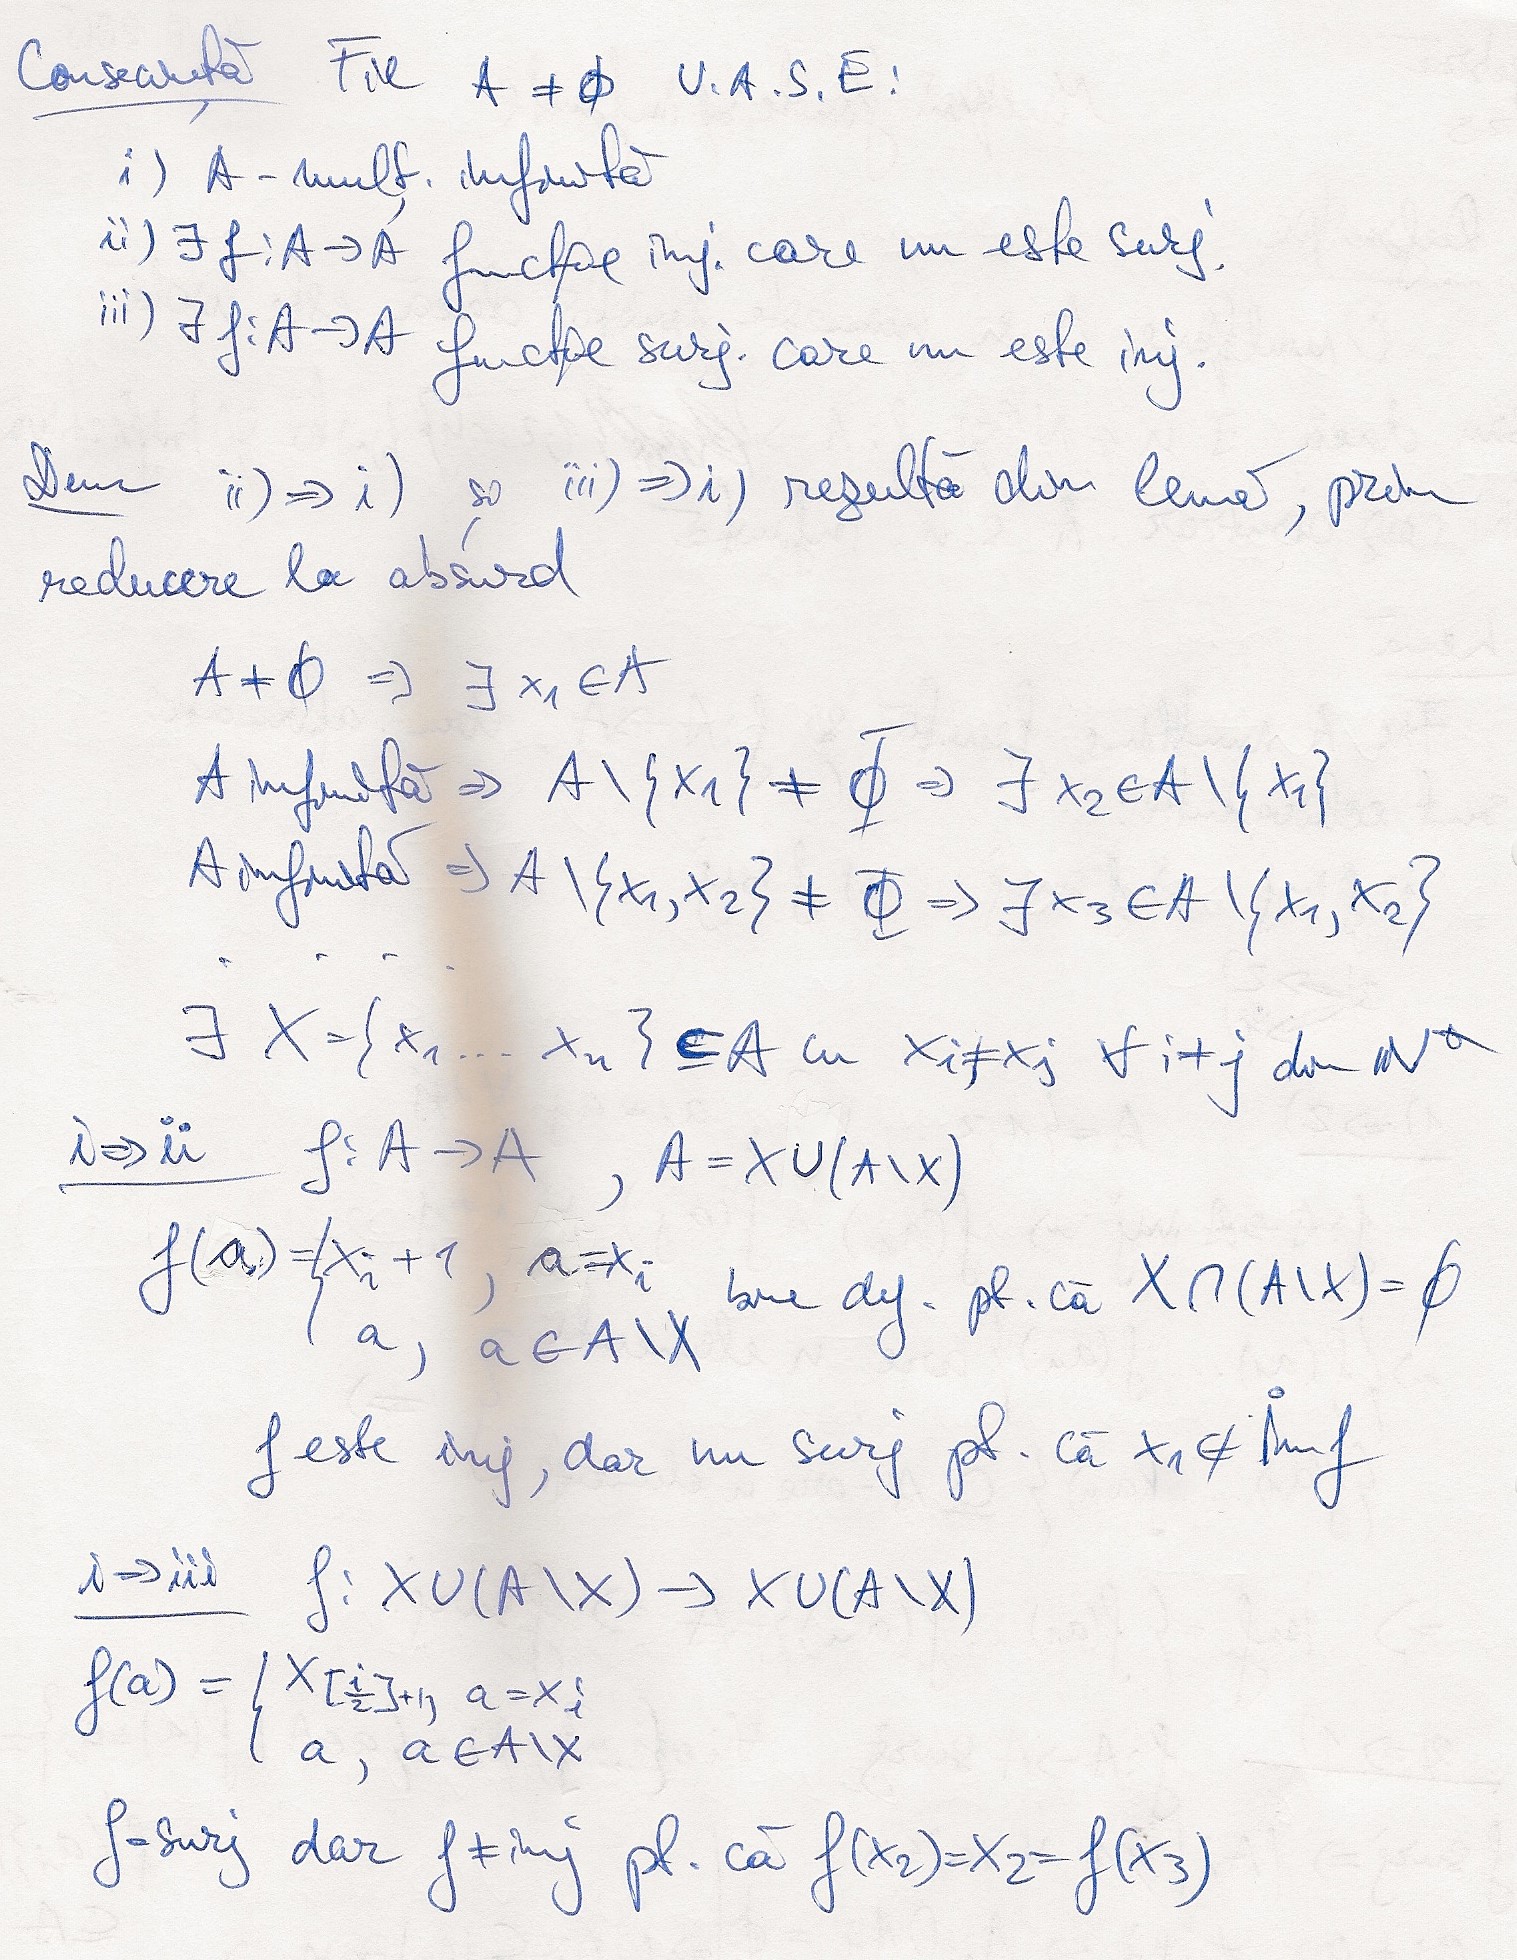 Consecință Fie A ≠ ∅ U.A.S.E:
i) A - mulț. infinită
ii) ∃ f: A → A funcție inj. care nu este surj.
iii) ∃ f: A → A funcție surj. care nu este inj.
Dem ii) ⇒ i) și iii) ⇒ i) rezultă din lemă, prin
reducere la absurd
A ≠ ∅ ⇒ ∃ x₁ ∈ A
A infinită ⇒ A \ {x₁} ≠ ∅ ⇒ ∃ x₂ ∈ A \ {x₁}
A infinită ⇒ A \ {x₁, x₂} ≠ ∅ ⇒ ∃ x₃ ∈ A \ {x₁, x₂}
. . . .
∃ X = {x₁ ... xₙ } ⊆ A cu xᵢ ≠ xⱼ ∀ i ≠ j din ℕ*
i ⇒ ii f: A → A , A = X ∪ (A \ X)
f(a) = { xᵢ + 1 , a = xᵢ bine def. pt. că X ∩ (A \ X) = ∅
a , a ∈ A \ X
f este inj, dar nu surj pt. că x₁ ∉ Im f
i ⇒ iii f: X ∪ (A \ X) → X ∪ (A \ X)
f(a) = { x_{[i/2]+1}, a = xᵢ
a , a ∈ A \ X
f = surj dar f ≠ inj pt. că f(x₂) = x₂ = f(x₃)